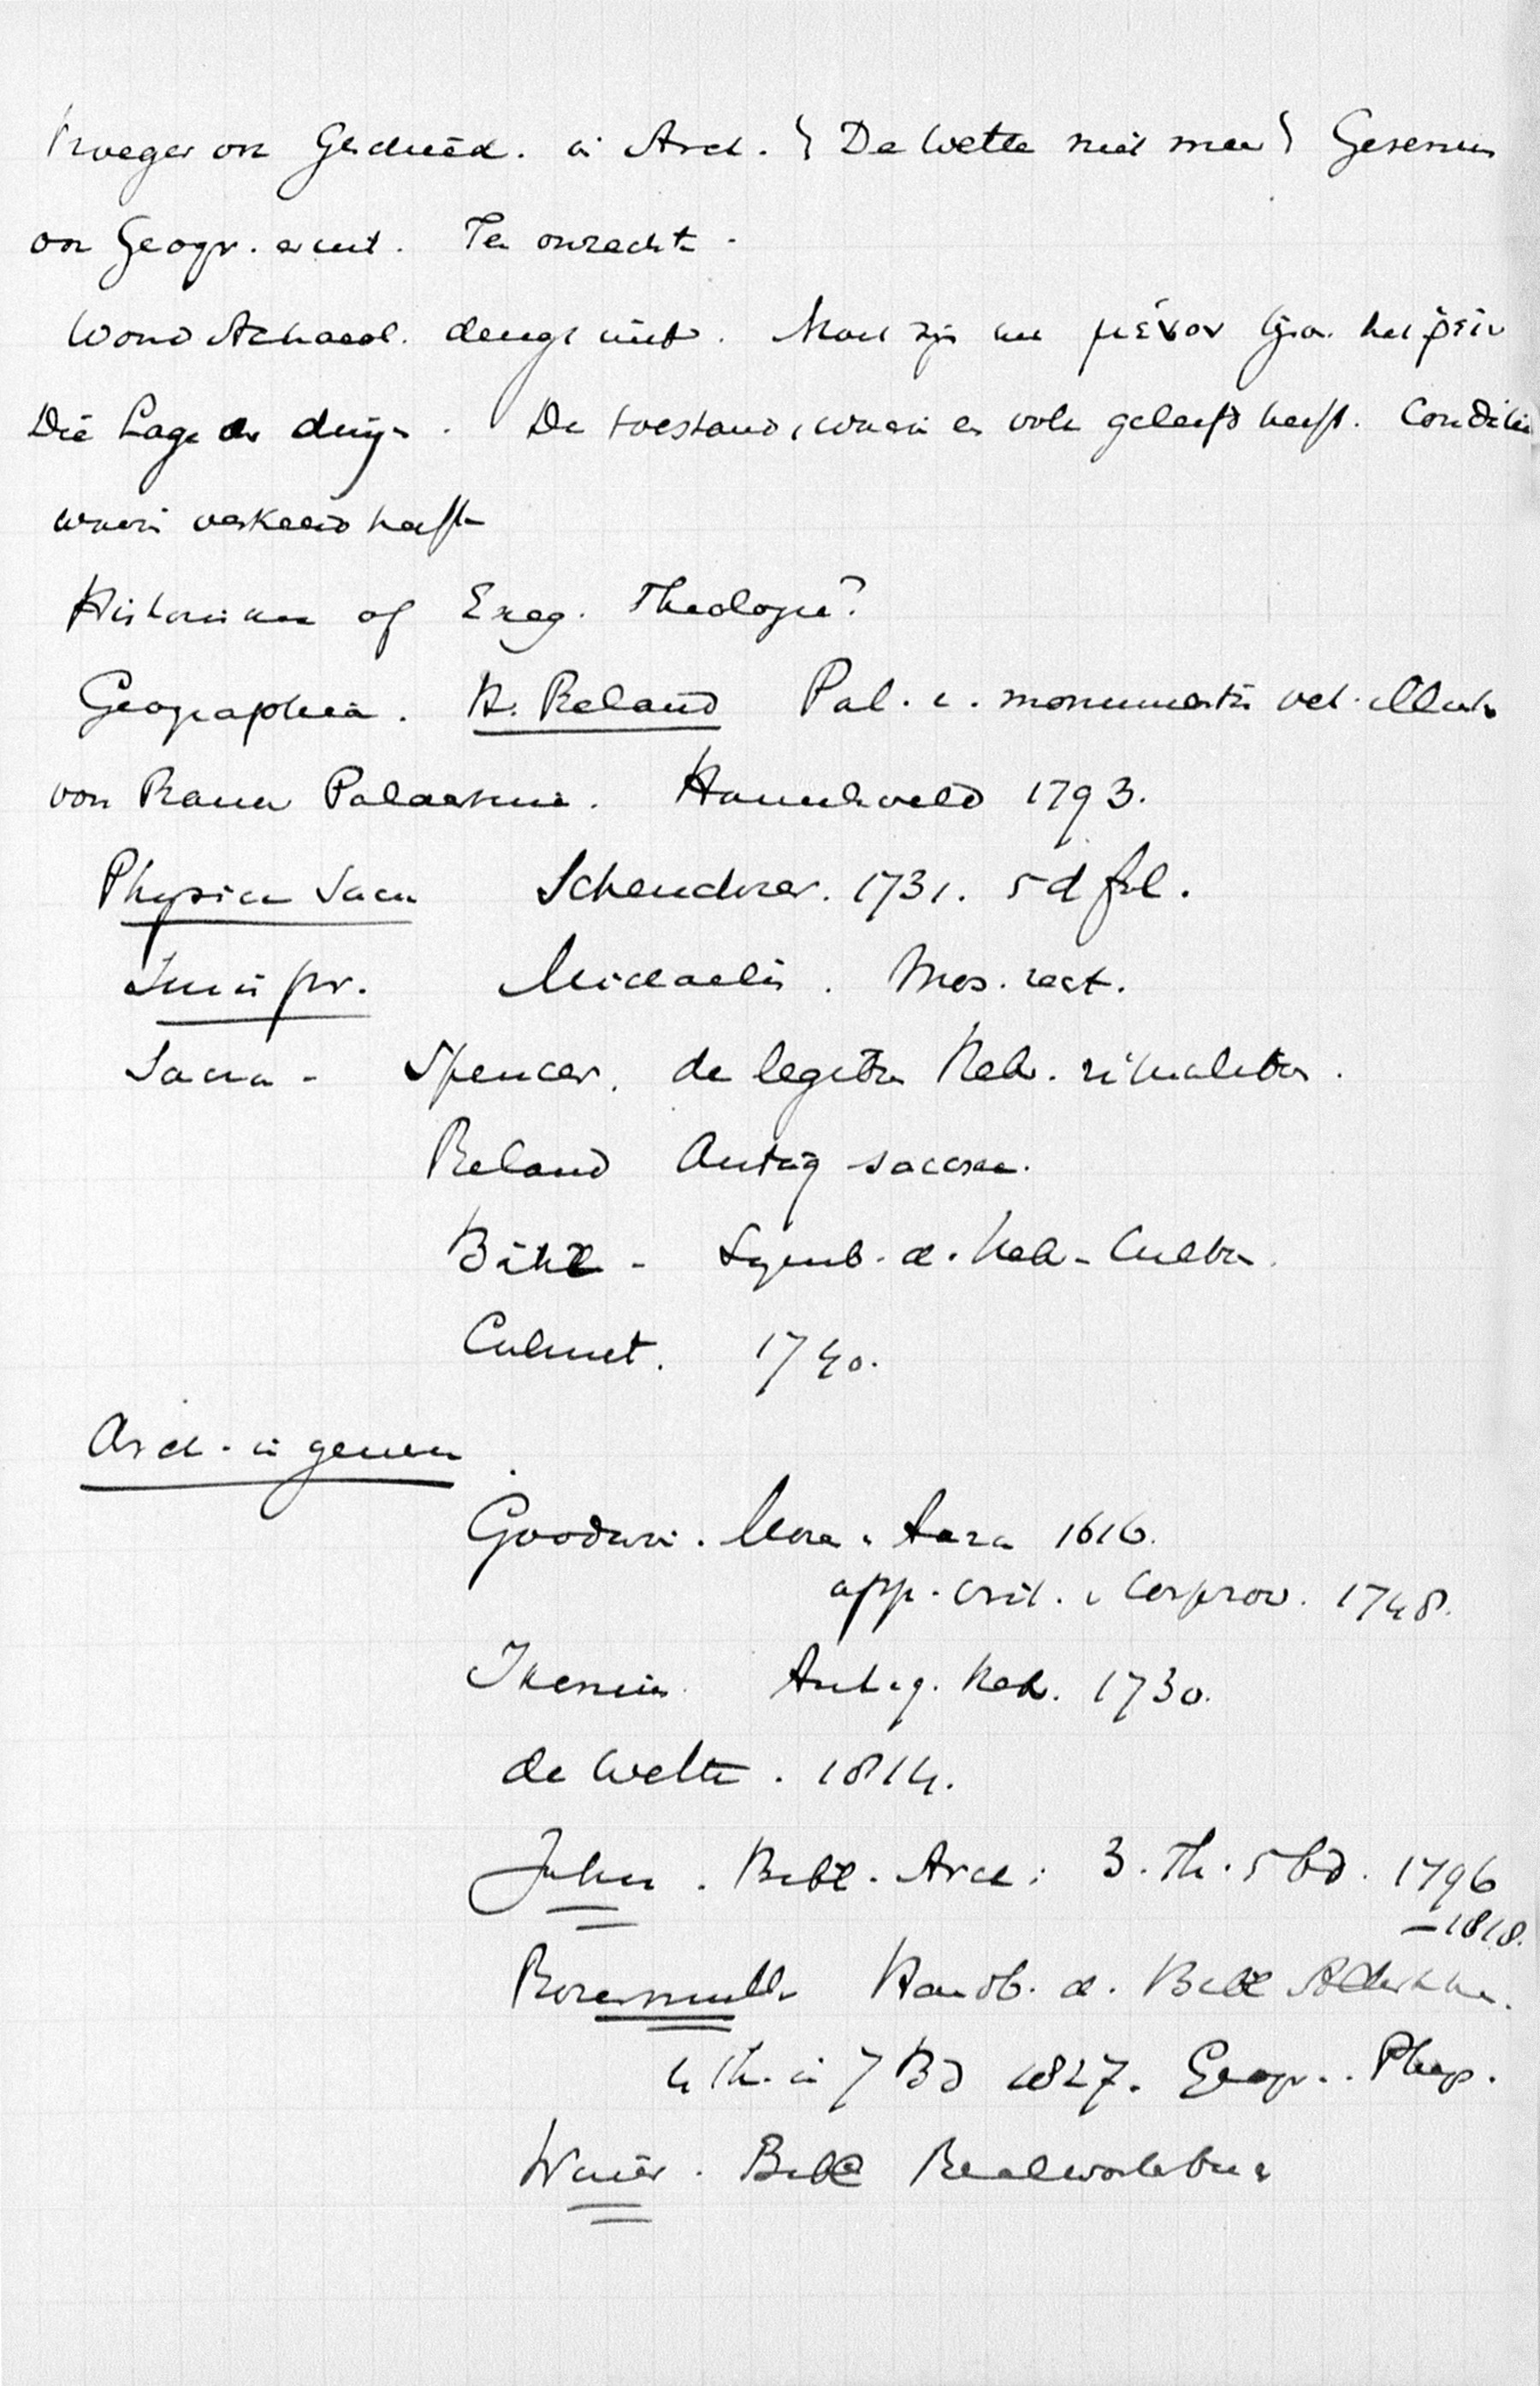 Vroeger ook Geschied. in Arch. } De Wette niet meer } Gesenius
ook Geogr. er uit. Ten onrechte.
Woord Achaeol. deugt niet. Moet zijn het μένον tgov. het ῥεῖν
Die Lage der dinge. De toestand, waarin een volk geleefd heeft. Conditie
waarin verkeerd heeft
Historische of Exeg. Theologie?
Geographia. H. Reland Pal. e. monumentis vet. illustr.
von Raumer Palaestina. Hamelsveld 1793.
Physica Sacra Scheuchzer. 1731. 5 d fol.
Juris pr. Michaelis. Mos. recht.
Sacra - Spencer. de legibus Heb. ritualibus.
Reland Antiq sacrae.
Bähr - Symb. d. Heb. Cultus.
Calmet. 1740.
Arch. in genere
Goodwin. Mose et Aaron 1616.
app. crit. Carpzov. 1748.
Ikenius Antiq. Heb. 1730.
de Wette. 1814.
Jahn. Bibl. Arch: 3. Th. 5 bd. 1796
–1818.
Rosenmuller Handb. d. Bibl Alterthum.
4 Th. in 7 Bd 1827. Geogr. Phys.
Winer. Bibl Realworterbuch